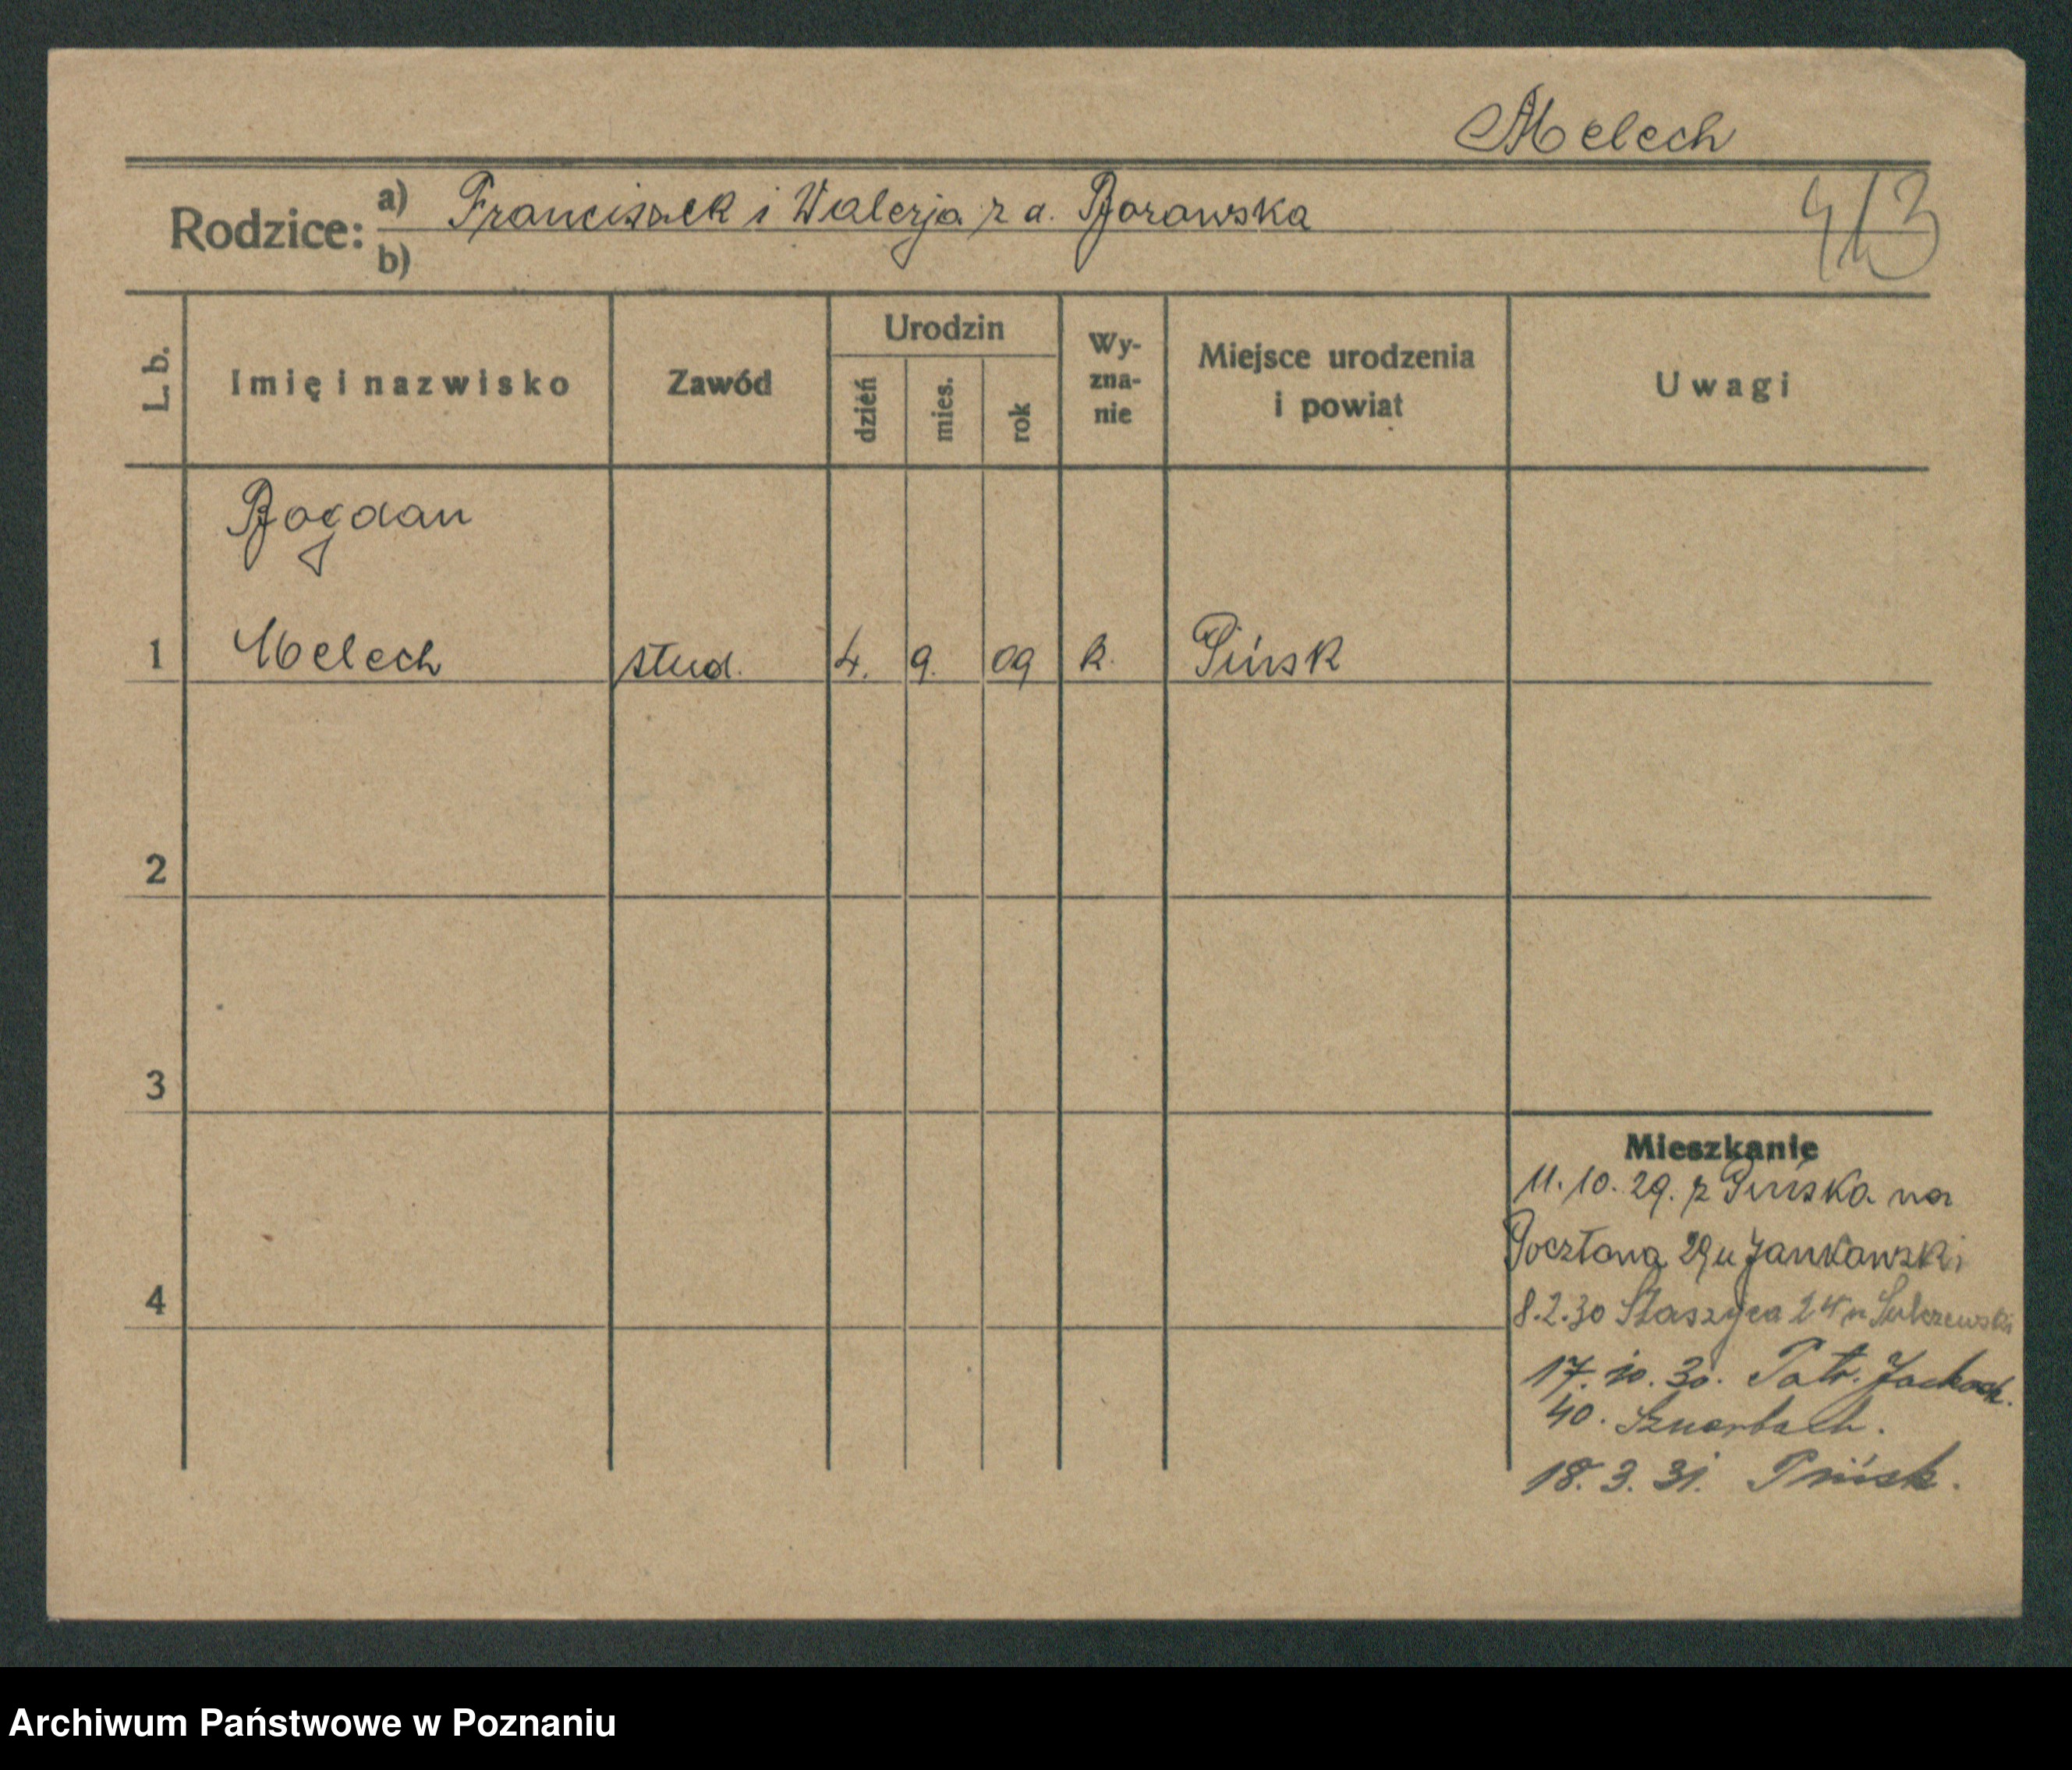 Melech
Rodzice: a) Franciszek i Walerja z d. Borowska
b)
4/3
L. b. Imię i nazwisko Zawód Urodzin dzień mies. rok Wyzna-nie Miejsce urodzenia i powiat Uwagi
Bogdan
1 Melech stud. 4. 9. 09 k. Pińsk
2
3
Mieszkanie
11.10.29. z Pińska na
Pocztowa 29 u Jankowski
4
8.2.30 Staszyca 24 u
17.10.30. Patr. Jackow.
40.
18.3.31. Pińsk.
Archiwum Państwowe w Poznaniu